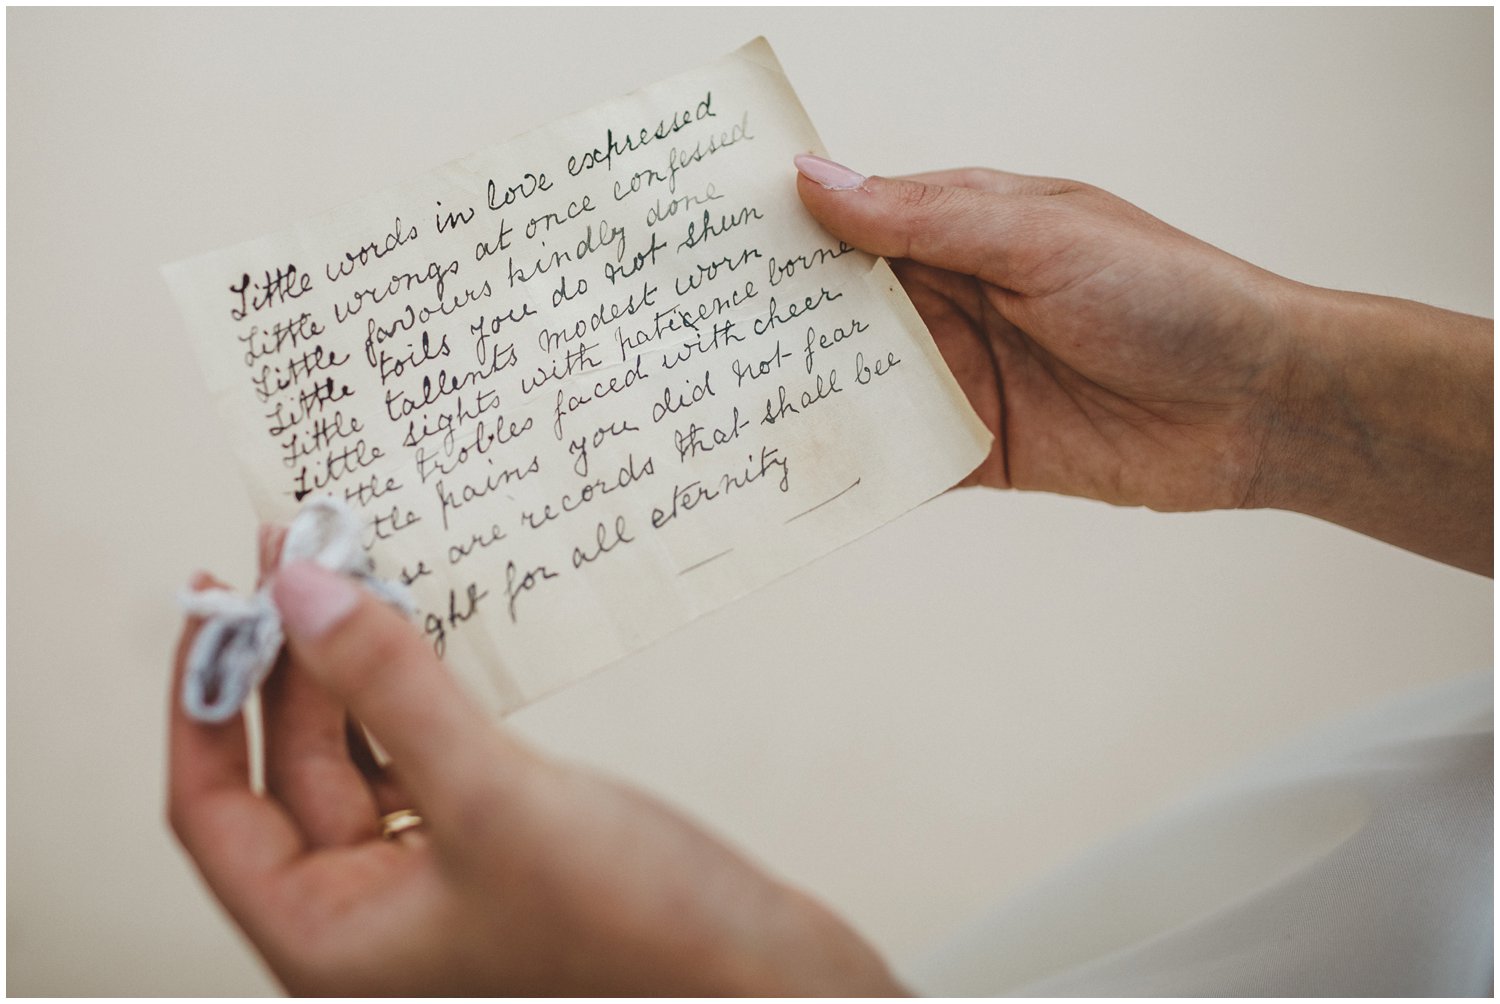 Little words in love expressed
Little wrongs at once confessed
Little favours kindly done
Little toils you do not shun
Little tallents modest worn
Little sights with paticence borne
ittle trobles faced with cheer
tle pains you did not fear
se are records that shall bee
ight for all eternity